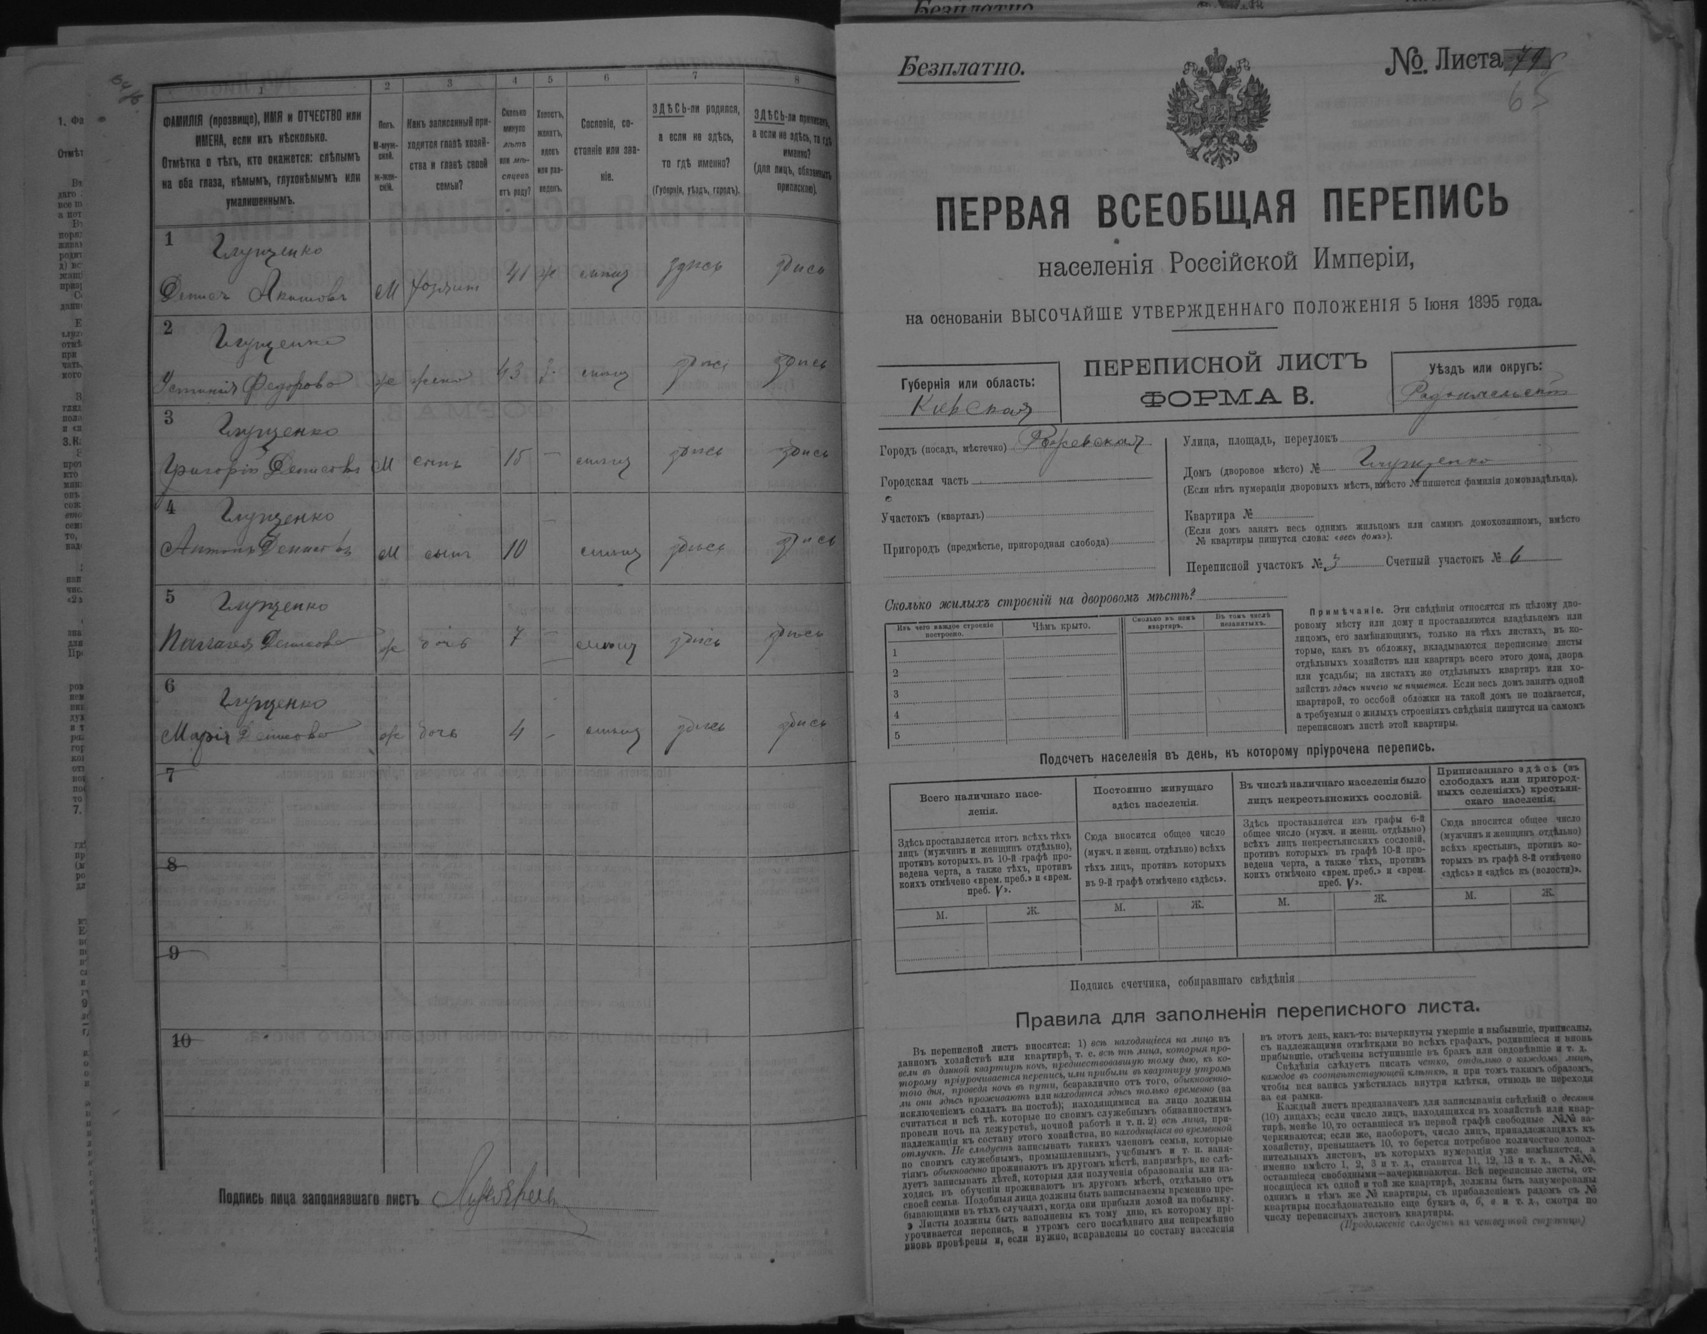 1
2
3
4
5
6
7
8
ФАМИЛІЯ (прозвище), ИМЯ и ОТЧЕСТВО или
ИМЕНА, если ихъ нѣсколько.
Отмѣтка о тѣхъ, кто окажется: слѣпымъ
на оба глаза, нѣмымъ, глухонѣмымъ или
умалишеннымъ.
Полъ.
М-муж-
ской.
Ж-жен-
скій.
Какъ записанный при-
ходится главѣ хозяй-
ства и главѣ своей
семьи?
Сколько
минуло
лѣтъ
или мѣ-
сяцевъ
отъ роду?
Холостъ,
женатъ,
вдовъ
или раз-
веденъ.
Сословіе, со-
стояніе или зва-
ніе.
ЗДѢСЬ-ли родился,
а если не здѣсь,
то гдѣ именно?
(Губернія, уѣздъ, городъ).
ЗДѢСЬ-ли приписанъ,
а если не здѣсь, то гдѣ
именно?
(для лицъ, обязанныхъ
припискою).
1 Глущенко
М хозяин 41 ж здись здись
2 Глущенко
Устинія Федорова ж жена 43 з здись здись
3 Глущенко
Григорій Денисовъ М сынъ 15 — здись здись
4 Глущенко
Антонъ Денисовъ М сынъ 10 — здись здись
5 Глущенко
Пелагея Денисова ж дочь 7 — здись здись
6 Глущенко
Марія Денисова ж дочь 4 - здись здись
7
8
9
10
Подпись лица заполнявшаго листъ
Безплатно.
№ Листа
65
ПЕРВАЯ ВСЕОБЩАЯ ПЕРЕПИСЬ
населенія Россійской Имперіи,
на основаніи ВЫСОЧАЙШЕ УТВЕРЖДЕННАГО ПОЛОЖЕНІЯ 5 Іюня 1895 года.
Губернія или область:
Кіевская
ПЕРЕПИСНОЙ ЛИСТЪ
ФОРМА В.
Уѣздъ или округъ:
Радомысльскій
Городъ (посадъ, мѣстечко) Рожевская
Городская часть
Участокъ (кварталъ)
Пригородъ (предмѣстье, пригородная слобода)
Улица, площадь, переулокъ
Домъ (дворовое мѣсто) № Глущенко
(Если нѣтъ нумераціи дворовыхъ мѣстъ, вмѣсто № пишется фамилія домовладѣльца).
Квартира №
(Если домъ занятъ весь однимъ жильцомъ или самимъ домохозяиномъ, вмѣсто
№ квартиры пишутся слова: «весь домъ»).
Переписной участокъ № 3 Счетный участокъ № 6
Сколько жилыхъ строеній на дворовомъ мѣстѣ?
Изъ чего каждое строеніе
построено.
Чѣмъ крыто.
Сколько въ немъ
квартиръ.
Въ томъ числѣ
незанятыхъ.
1
2
3
4
5
Примѣчаніе. Эти свѣдѣнія относятся къ цѣлому дво-
ровому мѣсту или дому и проставляются владѣльцемъ или
лицомъ, его замѣняющимъ, только на тѣхъ листахъ, въ ко-
торые, какъ въ обложку, вкладываются переписные листы
отдѣльныхъ хозяйствъ или квартиръ всего этого дома, двора
или усадьбы; на листахъ же отдѣльныхъ квартиръ или хо-
зяйствъ здѣсь ничего не пишется. Если весь домъ занятъ одной
квартирой, то особой обложки на такой домъ не полагается,
а требуемыя о жилыхъ строеніяхъ свѣдѣнія пишутся на самомъ
переписномъ листѣ этой квартиры.
Подсчетъ населенія въ день, къ которому пріурочена перепись.
Всего наличнаго насе-
ленія.
Здѣсь проставляется итогъ всѣхъ тѣхъ
лицъ (мужчинъ и женщинъ отдѣльно),
противъ которыхъ въ 10-й графѣ про-
ведена черта, а также тѣхъ, противъ
коихъ отмѣчено «врем. преб.» и «врем.
преб. V».
Постоянно живущаго
здѣсь населенія.
Сюда вносится общее число
(мужч. и женщ. отдѣльно) всѣхъ
тѣхъ лицъ, противъ которыхъ
въ 9-й графѣ отмѣчено «здѣсь».
Въ числѣ наличнаго населенія было
лицъ некрестьянскихъ сословій.
Здѣсь проставляется изъ графы 6-й
общее число (мужч. и женщ. отдѣльно)
всѣхъ лицъ некрестьянскихъ сословій,
противъ которыхъ въ графѣ 10-й про-
ведена черта, а также тѣхъ, противъ
коихъ отмѣчено «врем. преб.» и «врем.
преб. V».
Приписаннаго здѣсь (въ
слободахъ или пригород-
ныхъ селеніяхъ) крестьян-
скаго населенія.
Сюда вносится общее число
(мужчинъ и женщинъ отдѣльно)
всѣхъ крестьянъ, противъ ко-
торыхъ въ графѣ 8-й отмѣчено
«здѣсь» и «здѣсь къ (волости)».
М. Ж. М. Ж. М. Ж. М. Ж.
Подпись счетчика, собиравшаго свѣдѣнія
Правила для заполненія переписного листа.
Въ переписной листъ вносятся: 1) всѣ находящіеся на лицо въ
данномъ хозяйствѣ или квартирѣ, т. е. всѣ тѣ лица, которыя про-
вели въ данной квартирѣ ночь, предшествовавшую тому дню, къ ко-
торому пріурочивается перепись, или прибыли въ квартиру утромъ
того дня, проведя ночь въ пути, безразлично отъ того, обыкновенно-
ли они здѣсь проживаютъ или находятся здѣсь только временно (за
исключеніемъ солдатъ на постоѣ); находящимися на лицо должны
считаться и всѣ тѣ, которые по своимъ служебнымъ обязанностямъ
провели ночь на дежурствѣ, ночной работѣ и т. п. 2) всѣ лица, при-
надлежащія къ составу этого хозяйства, но находящіяся во временной
отлучкѣ. Не слѣдуетъ записывать такихъ членовъ семьи, которые
по своимъ служебнымъ, промышленнымъ, учебнымъ и т. п. заня-
тіямъ обыкновенно проживаютъ въ другомъ мѣстѣ, напримѣръ, не слѣ-
дуетъ записывать дѣтей, которыя для полученія образованія или на-
ходясь въ обученіи проживаютъ въ другомъ мѣстѣ, отдѣльно отъ
своей семьи. Подобныя лица должны быть записываемы временно пре-
бывающими въ тѣхъ случаяхъ, когда они прибыли домой на побывку.
Листы должны быть заполнены къ тому дню, къ которому прі-
урочивается перепись, и утромъ сего послѣдняго дня непремѣнно
вновь провѣрены и, если нужно, исправлены по составу населенія
въ этотъ день, какъ-то: вычеркнуты умершіе и выбывшіе, приписаны,
съ надлежащими отмѣтками во всѣхъ графахъ, родившіеся и вновь
прибывшіе, отмѣчены вступившіе въ бракъ или овдовѣвшіе и т. д.
Свѣдѣнія слѣдуетъ писать четко, отдѣльно о каждомъ лицѣ,
каждое въ соотвѣтствующей клѣткѣ, и при томъ такимъ образомъ,
чтобы вся запись умѣстилась внутри клѣтки, отнюдь не переходя
за ея рамки.
Каждый листъ предназначенъ для записыванія свѣдѣній о десяти
(10) лицахъ; если число лицъ, находящихся въ хозяйствѣ или квар-
тирѣ, менѣе 10, то оставшіеся въ первой графѣ свободные №№ за-
черкиваются; если же, наоборотъ, число лицъ, принадлежащихъ къ
хозяйству, превышаетъ 10, то берется потребное количество допол-
нительныхъ листовъ, въ которыхъ нумерація уже измѣняется, а
именно вмѣсто 1, 2, 3 и т. д., ставится 11, 12, 13 и т. д., а №№,
оставшіеся свободными—зачеркиваются. Всѣ переписные листы, от-
носящіеся къ одной и той же квартирѣ, должны быть занумерованы
однимъ и тѣмъ же № квартиры, съ прибавленіемъ рядомъ съ №
квартиры послѣдовательно еще буквъ а, б, в и т. д., смотря по
числу переписныхъ листовъ квартиры.
(Продолженіе слѣдуетъ на четвертой страницѣ)